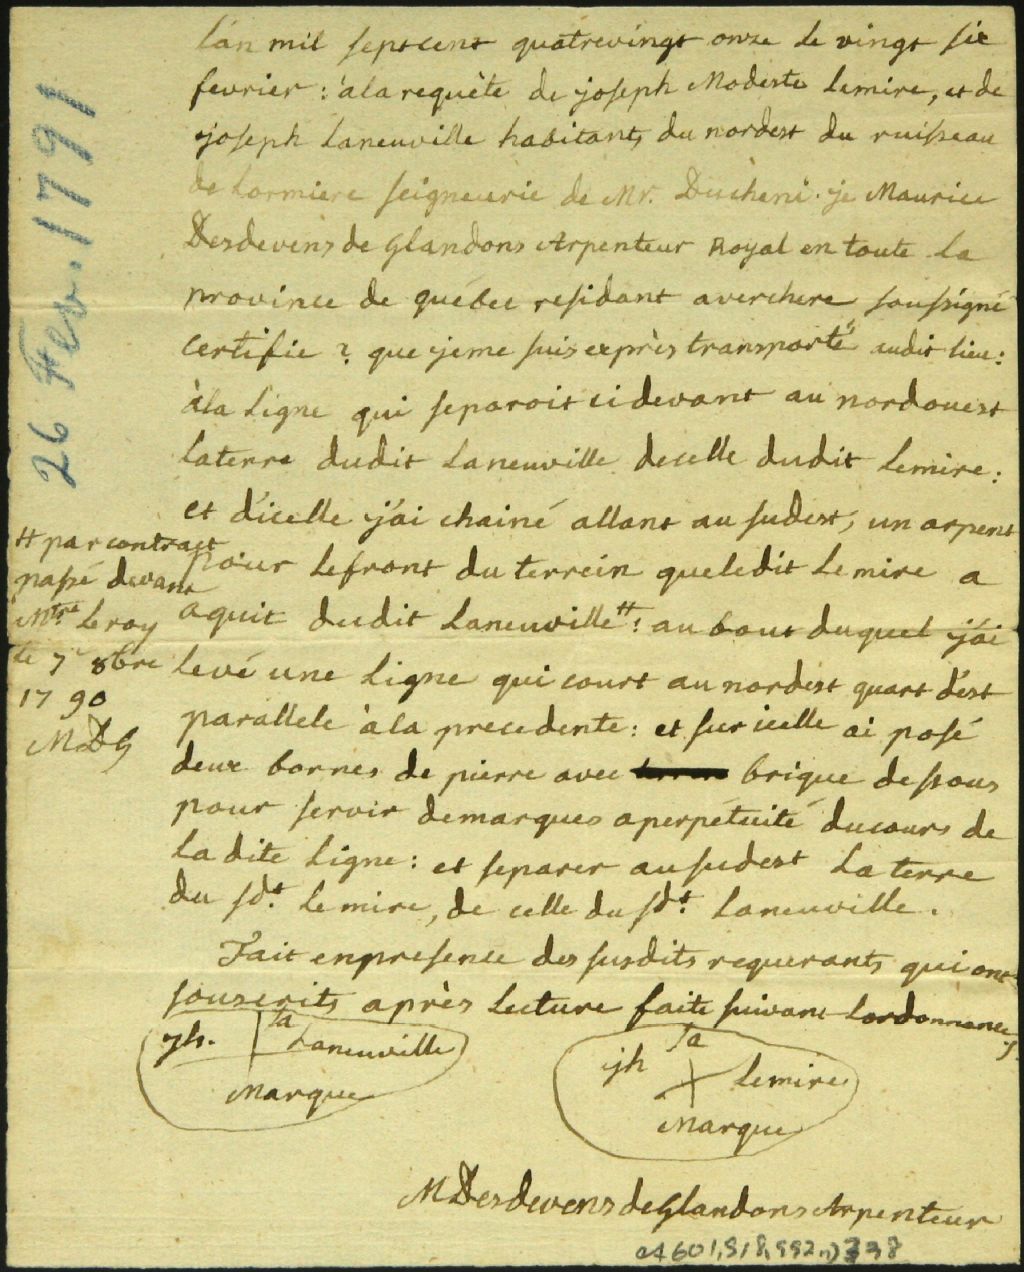 l'an mil septcent quatrevingt onze le vingt six
fevrier : àla requète de joseph Modeste Lemire, et de
joseph Laneuville habitants du nordest du ruisseau
de Lormiere seigneurie de Mr. Ducheni. je Maurice
Desdevens de Glandons Arpenteur Royal en toute la
province de québec residant averchere soussigné
certifie ? que jeme suis exprès transporté audit lieu :
àla Ligne qui separoit ci devant au nordouest
laterre dudit Laneuville decelle dudit Lemire :
et d'icelle j'ai chainé allant au sudest, un arpent
pour lefront du terrein queledit Lemire a
aquit dudit Laneuville # : au bout duquel j'ai
levé une Ligne qui court au nordest quart d'est
parallele àla precedente : et sur icelle ai posé
deux bornes de pierre avec brique dessous
pour servir demarques aperpétuité ducours de
Ladite Ligne : et separer ausudest la terre
du sdt. Lemire, de celle du sdt. Laneuville.
Fait enpresence des susdits requerants qui ont
souscrits après Lecture faite suivant Lordonnance
jh. sa Laneuville
Marque
jh sa Lemire
Marque
MDesdevens deGlandons Arpenteur
# par contract
passé devant
Mtre Leroy
le 7 8bre
1790
MDG
26 Fev. 1791